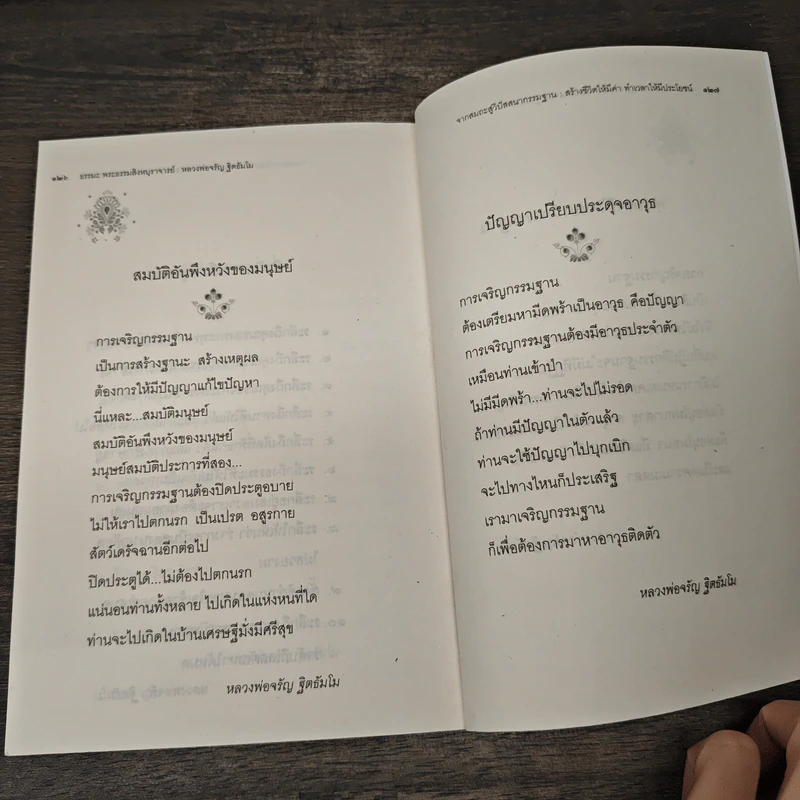 ๑๒๖ ธรรมะ พระธรรมสิงหบุราจารย์ : หลวงพ่อจรัญ ฐิตธัมโม
สมบัติอันพึงหวังของมนุษย์
การเจริญกรรมฐาน
เป็นการสร้างฐานะ สร้างเหตุผล
ต้องการให้มีปัญญาแก้ไขปัญหา
นี่แหละ...สมบัติมนุษย์
สมบัติอันพึงหวังของมนุษย์
มนุษย์สมบัติประการที่สอง...
การเจริญกรรมฐานต้องปิดประตูอบาย
ไม่ให้เราไปตกนรก เป็นเปรต อสูรกาย
สัตว์เดรัจฉานอีกต่อไป
ปิดประตูได้...ไม่ต้องไปตกนรก
แน่นอนท่านทั้งหลาย ไปเกิดในแห่งหนที่ใด
ท่านจะไปเกิดในบ้านเศรษฐีมั่งมีศรีสุข
หลวงพ่อจรัญ ฐิตธัมโม
จากสมถะสู่วิปัสสนากรรมฐาน : สร้างชีวิตให้มีค่า ทำเวลาให้มีประโยชน์ ๑๒๗
ปัญญาเปรียบประดุจอาวุธ
การเจริญกรรมฐาน
ต้องเตรียมหามีดพร้าเป็นอาวุธ คือปัญญา
การเจริญกรรมฐานต้องมีอาวุธประจำตัว
เหมือนท่านเข้าป่า
ไม่มีมีดพร้า...ท่านจะไปไม่รอด
ถ้าท่านมีปัญญาในตัวแล้ว
ท่านจะใช้ปัญญาไปบุกเบิก
จะไปทางไหนก็ประเสริฐ
เรามาเจริญกรรมฐาน
ก็เพื่อต้องการมาหาอาวุธติดตัว
หลวงพ่อจรัญ ฐิตธัมโม